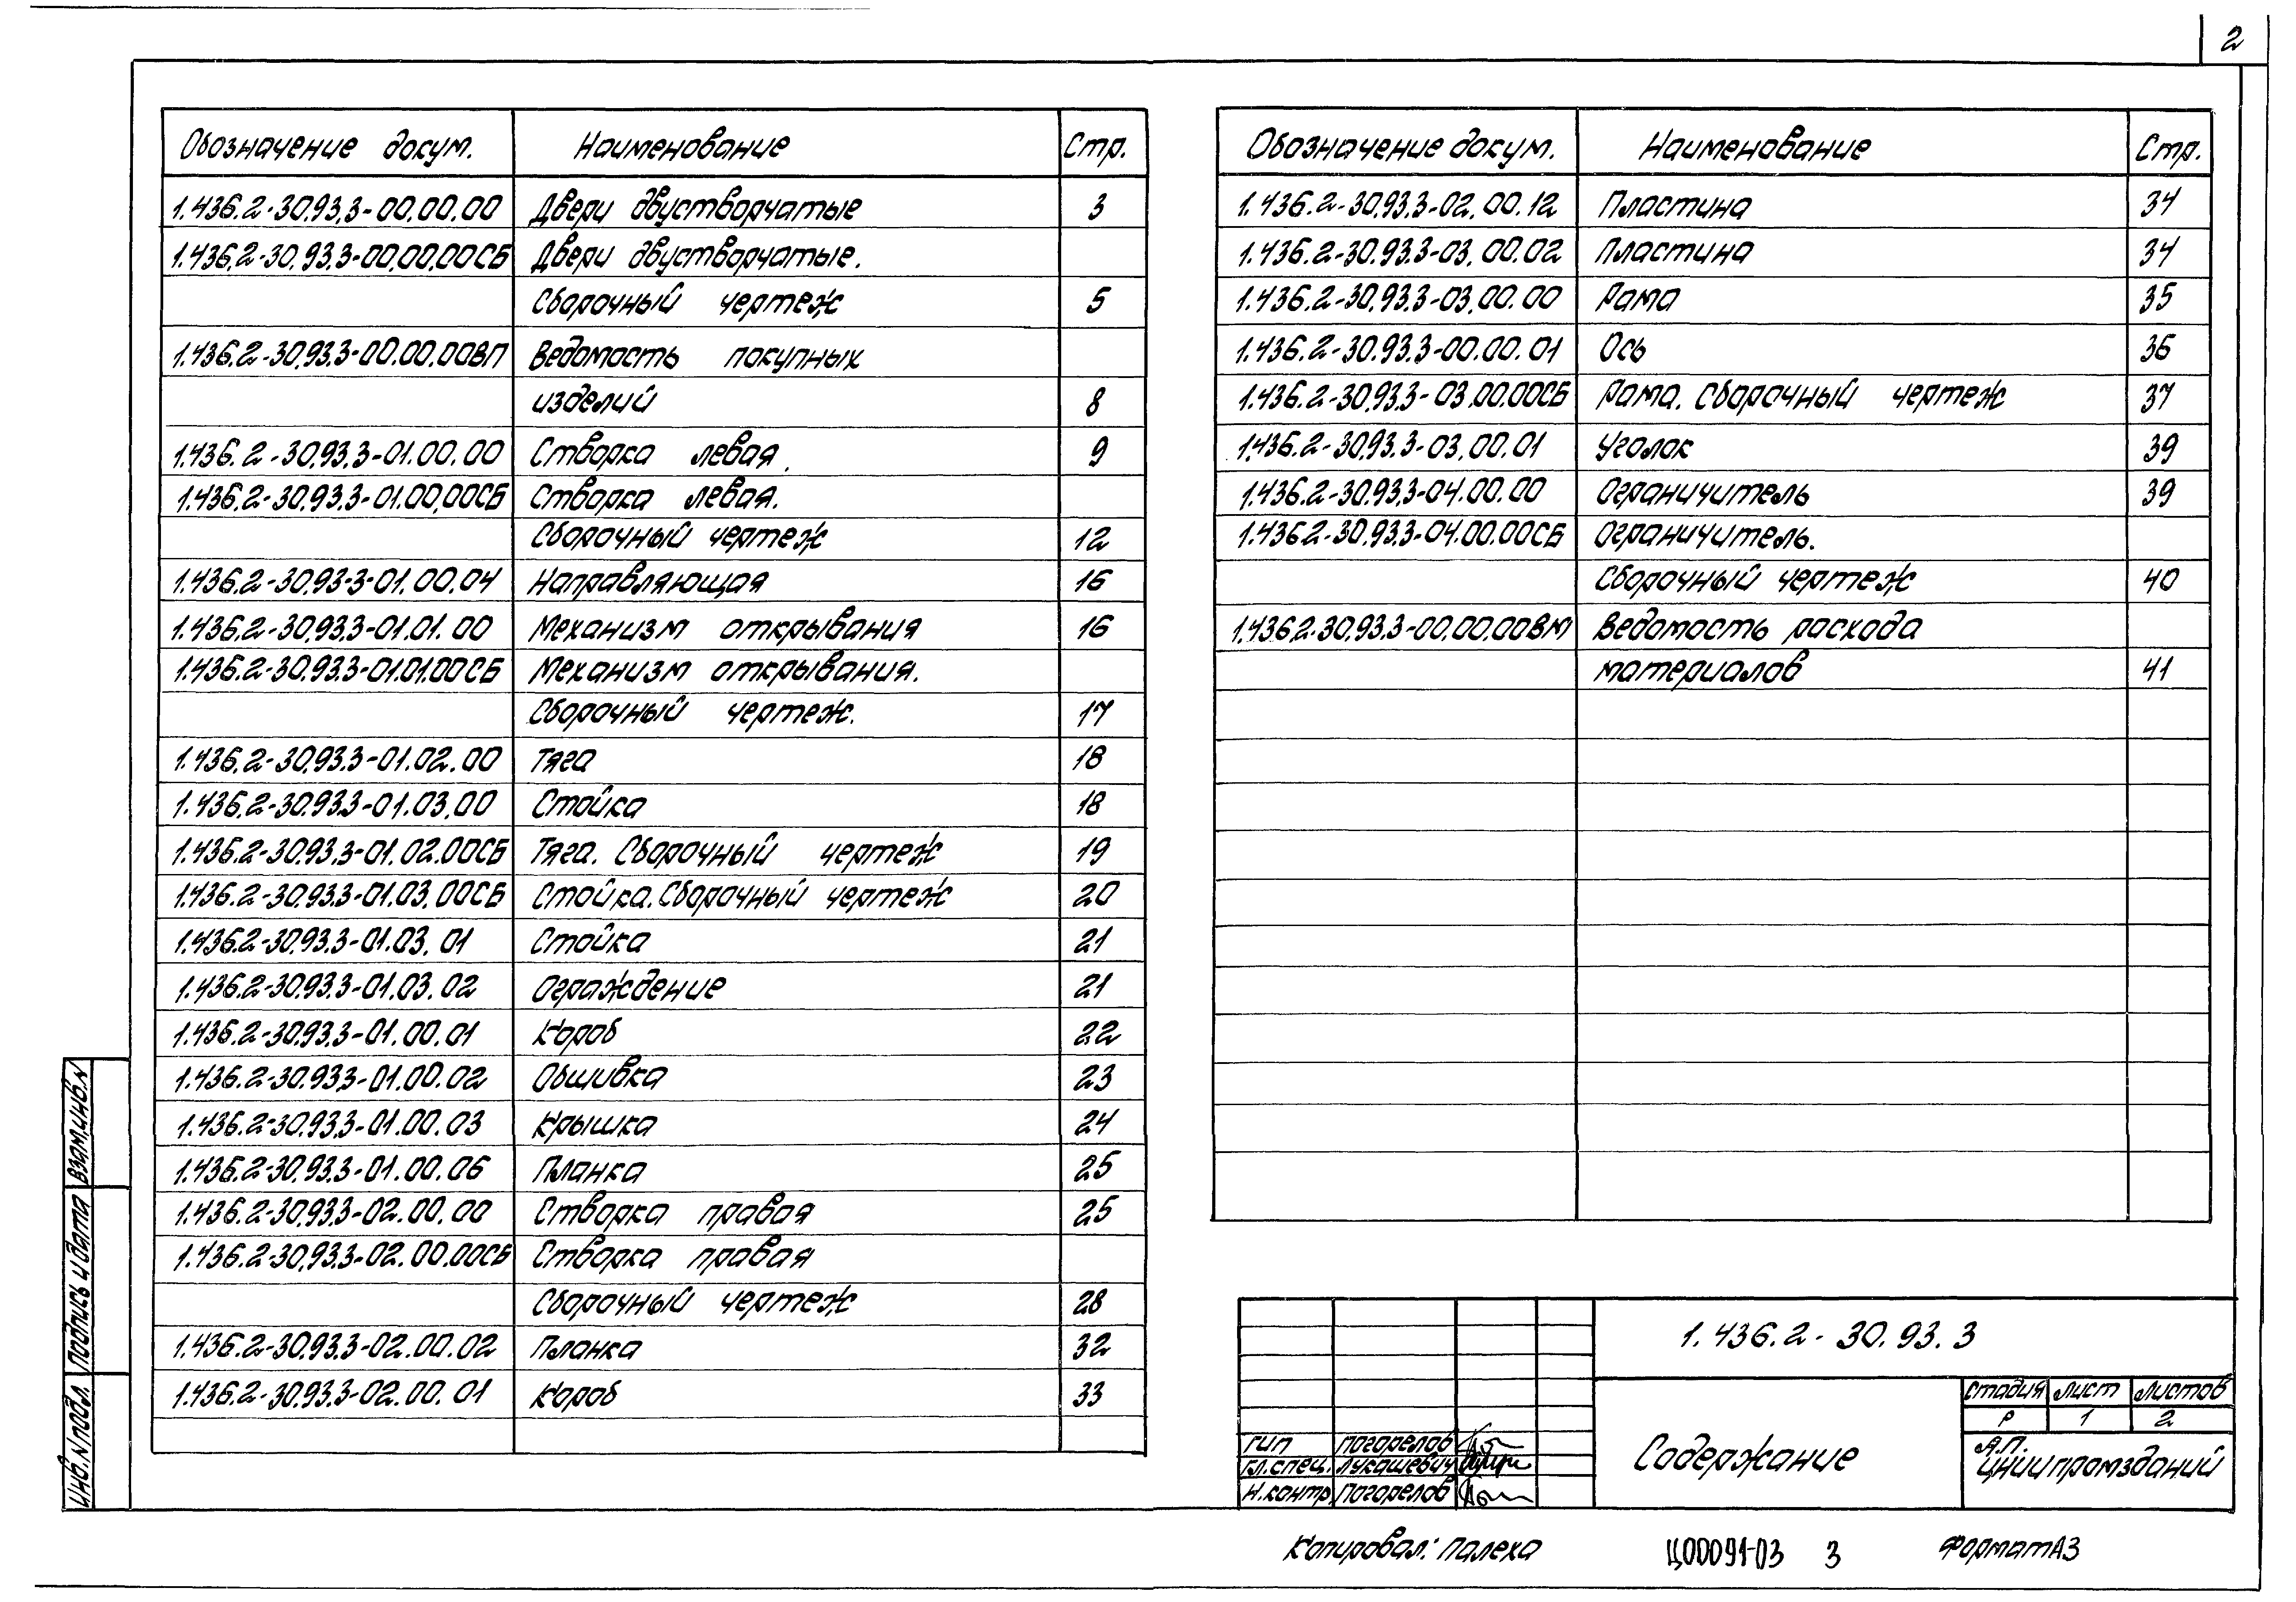 2
Обозначение докум. Наименование Стр.
1.436.2-30.93.3-00.00.00 Двери двустворчатые 3
1.436.2-30.93.3-00.00.00СБ Двери двустворчатые.
Сборочный чертеж 5
1.436.2-30.93.3-00.00.00ВП Ведомость покупных
изделий 8
1.436.2-30.93.3-01.00.00 Створка левая. 9
1.436.2-30.93.3-01.00.00СБ Створка левая.
Сборочный чертеж 12
1.436.2-30.93.3-01.00.04 Направляющая 16
1.436.2-30.93.3-01.01.00 Механизм открывания 16
1.436.2-30.93.3-01.01.00СБ Механизм открывания.
Сборочный чертеж. 17
1.436.2-30.93.3-01.02.00 Тяга 18
1.436.2-30.93.3-01.03.00 Стойка 18
1.436.2-30.93.3-01.02.00СБ Тяга. Сборочный чертеж 19
1.436.2-30.93.3-01.03.00СБ Стойка. Сборочный чертеж 20
1.436.2-30.93.3-01.03.01 Стойка 21
1.436.2-30.93.3-01.03.02 Ограждение 21
1.436.2-30.93.3-01.00.01 Короб 22
1.436.2-30.93.3-01.00.02 Обшивка 23
1.436.2-30.93.3-01.00.03 Крышка 24
1.436.2-30.93.3-01.00.06 Планка 25
1.436.2-30.93.3-02.00.00 Створка правая 25
1.436.2-30.93.3-02.00.00СБ Створка правая
Сборочный чертеж 28
1.436.2-30.93.3-02.00.02 Планка 32
1.436.2-30.93.3-02.00.01 Короб 33
Обозначение докум. Наименование Стр.
1.436.2-30.93.3-02.00.12 Пластина 34
1.436.2-30.93.3-03.00.02 Пластина 34
1.436.2-30.93.3-03.00.00 Рама 35
1.436.2-30.93.3-00.00.01 Ось 36
1.436.2-30.93.3-03.00.00СБ Рама. Сборочный чертеж 37
1.436.2-30.93.3-03.00.01 Уголок 39
1.436.2-30.93.3-04.00.00 Ограничитель 39
1.436.2-30.93.3-04.00.00СБ Ограничитель.
Сборочный чертеж 40
1.436.2-30.93.3-00.00.00ВМ Ведомость расхода
материалов 41
Взам.инв.N
Подпись и дата
Инв.N подл.
1.436.2-30.93.3
Содержание
Стадия Лист Листов
Р 1 2
А.П.
ЦНИИпромзданий
ГИП Погорелов
Гл.спец. Лукашевич
Н.контр. Погорелов
Копировал: Палеха Ц00091-03 3 Формат А3